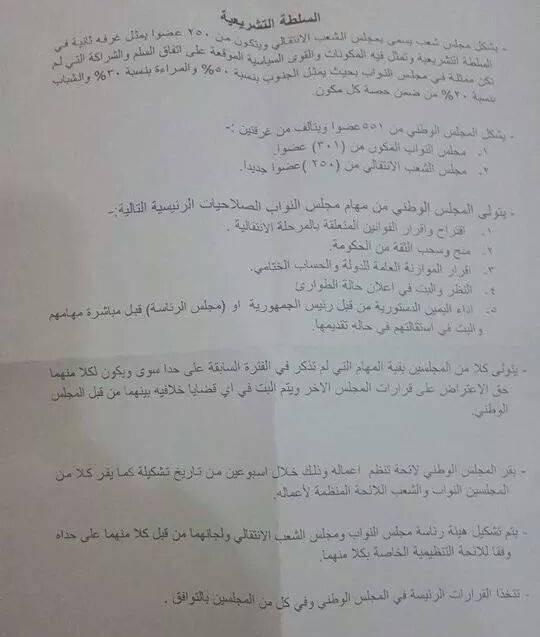 السلطة التشريعية
- يشكل مجلس شعب يسمى بمجلس الشعب الانتقالي ويتكون من ٢٥٠ عضوا يمثل غرفه ثانية في
السلطة التشريعية وتمثل فيه المكونات والقوى السياسية الموقعة على اتفاق السلم والشراكة التي لم
تكن ممثلة في مجلس النواب بحيث يمثل الجنوب بنسبة ٥٠% والمراءة بنسبة ٣٠% والشباب
بنسبة ٢٠% من ضمن حصة كل مكون.
- يشكل المجلس الوطني من ٥٥١ عضوا ويتالف من غرفتين :-
١. مجلس النواب المكون من (٣٠١) عضوا.
٢. مجلس الشعب الانتقالي من (٢٥٠) عضوا جديدا.
- يتولى المجلس الوطني من مهام مجلس النواب الصلاحيات الرئيسية التالية:-
١. اقتراح واقرار القوانين المتعلقة بالمرحلة الانتقالية .
٢. منح وسحب الثقة من الحكومة.
٣. اقرار الموازنة العامة للدولة والحساب الختامي.
٤. النظر والبت في اعلان حالة الطوارئ
٥. اداء اليمين الدستورية من قبل رئيس الجمهورية او (مجلس الرئاسة) قبل مباشرة مهامهم
والبت في استقالتهم في حاله تقديمها.
- يتولى كلا من المجلسين بقية المهام التي لم تذكر في الفترة السابقة على حدا سوى ويكون لكلا منهما
حق الاعتراض على قرارات المجلس الاخر ويتم البت في اي قضايا خلافيه بينهما من قبل المجلس
الوطني.
- يقر المجلس الوطني لائحة تنظم اعماله وذلك خلال اسبوعين من تاريخ تشكيلة كما يقر كلا من
المجلسين النواب والشعب اللائحة المنظمة لأعماله.
- يتم تشكيل هيئة رئاسة مجلس النواب ومجلس الشعب الانتقالي ولجانهما من قبل كلا منهما على حداه
وفقا للائحة التنظيمية الخاصة بكلا منهما.
- تتخذا القرارات الرئيسة في المجلس الوطني وفي كل من المجلسين بالتوافق .